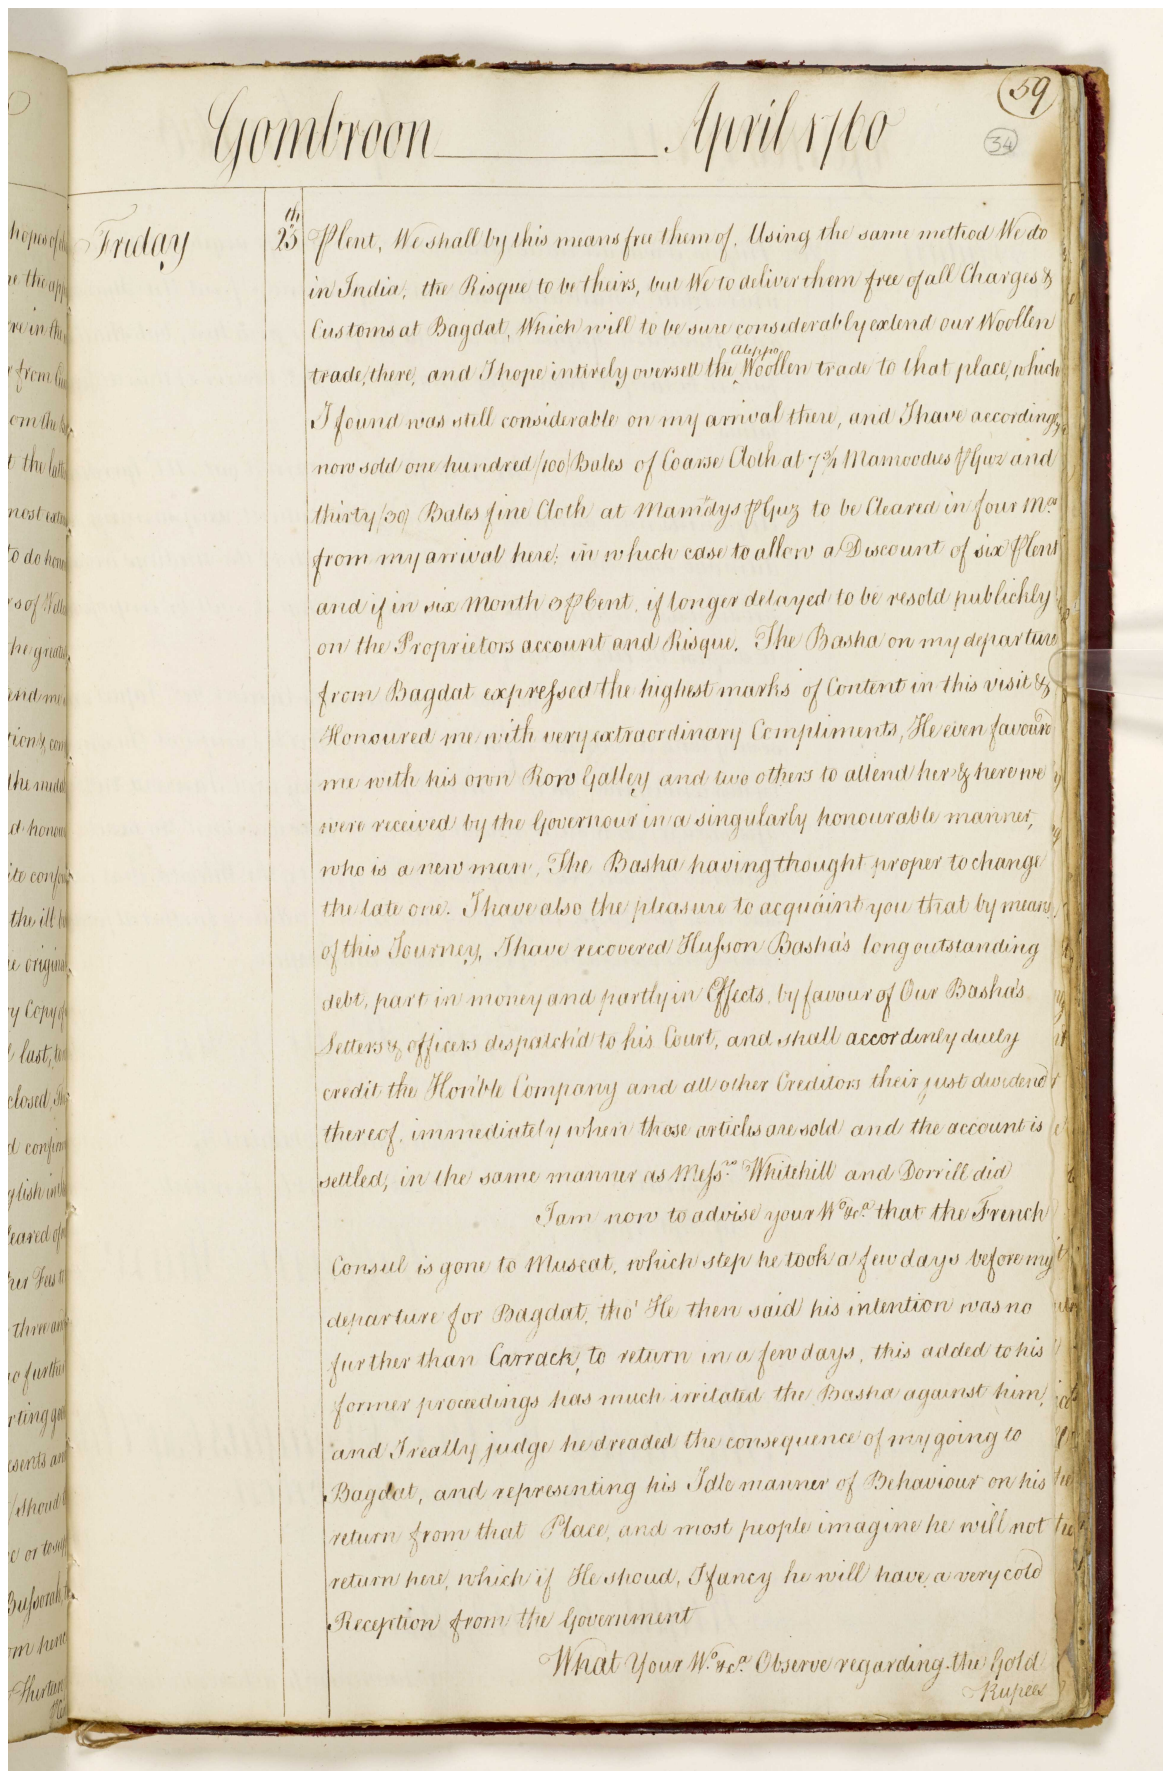 59
34
Gombroon April 1760
Friday 25th
P Cent, We shall by this means free them of, Using the same method We do
in India, the Risque to be theirs, but We to deliver them free of all Charges &
Customs at Bagdat, Which will to be sure considerably extend our Woollen
trade, there, and I hope intirely oversett the Aleppo Woollen trade to that place, which
I found was still considerable on my arrival there, and I have according
now sold one hundred /100/ Bales of Coarse Cloth at 7¾ Mamoodies P Guz and
thirty /30/ Bales fine Cloth at Mam'dys P Guz to be Cleared in four Mos.
from my arrival here; in which case to allow a Discount of six P Cent
and if in six Month 3 P Cent, if longer delayed to be resold publickly
on the Proprietors account and Risque. The Basha on my departure
from Bagdat expressed the highest marks of Content in this visit &
Honoured me with very extraordinary Compliments, He even favour'd
me with his own Row Galley and two others to attend her & here we
were received by the Governour in a singularly honourable manner,
who is a new man, The Basha having thought proper to change
the late one. I have also the pleasure to acquaint you that by means
of this Journey, I have recovered Husson Basha's long outstanding
debt, part in money and partly in Effects, by favour of Our Basha's
Letters & officers despatch'd to his Court, and shall accordinly duely
credit the Hon'ble Company and all other Creditors their just dividend
thereof, immediately when those articles are sold and the account is
settled, in the same manner as Messrs. Whitehill and Dorrill did
I am now to advise your Wo. &ca. that the French
Consul is gone to Muscat, which step he took a few days before my
departure for Bagdat, tho' He then said his intention was no
further than Carrack, to return in a few days, this added to his
former proceedings has much irritated the Basha against him,
and I really judge he dreaded the consequence of my going to
Bagdat, and representing his Idle manner of Behaviour on his
return from that Place, and most people imagine he will not
return here, which if He shoud, I fancy he will have a very cold
Reception from the Government
What Your Wo. &ca. Observe regarding the Gold
Rupees